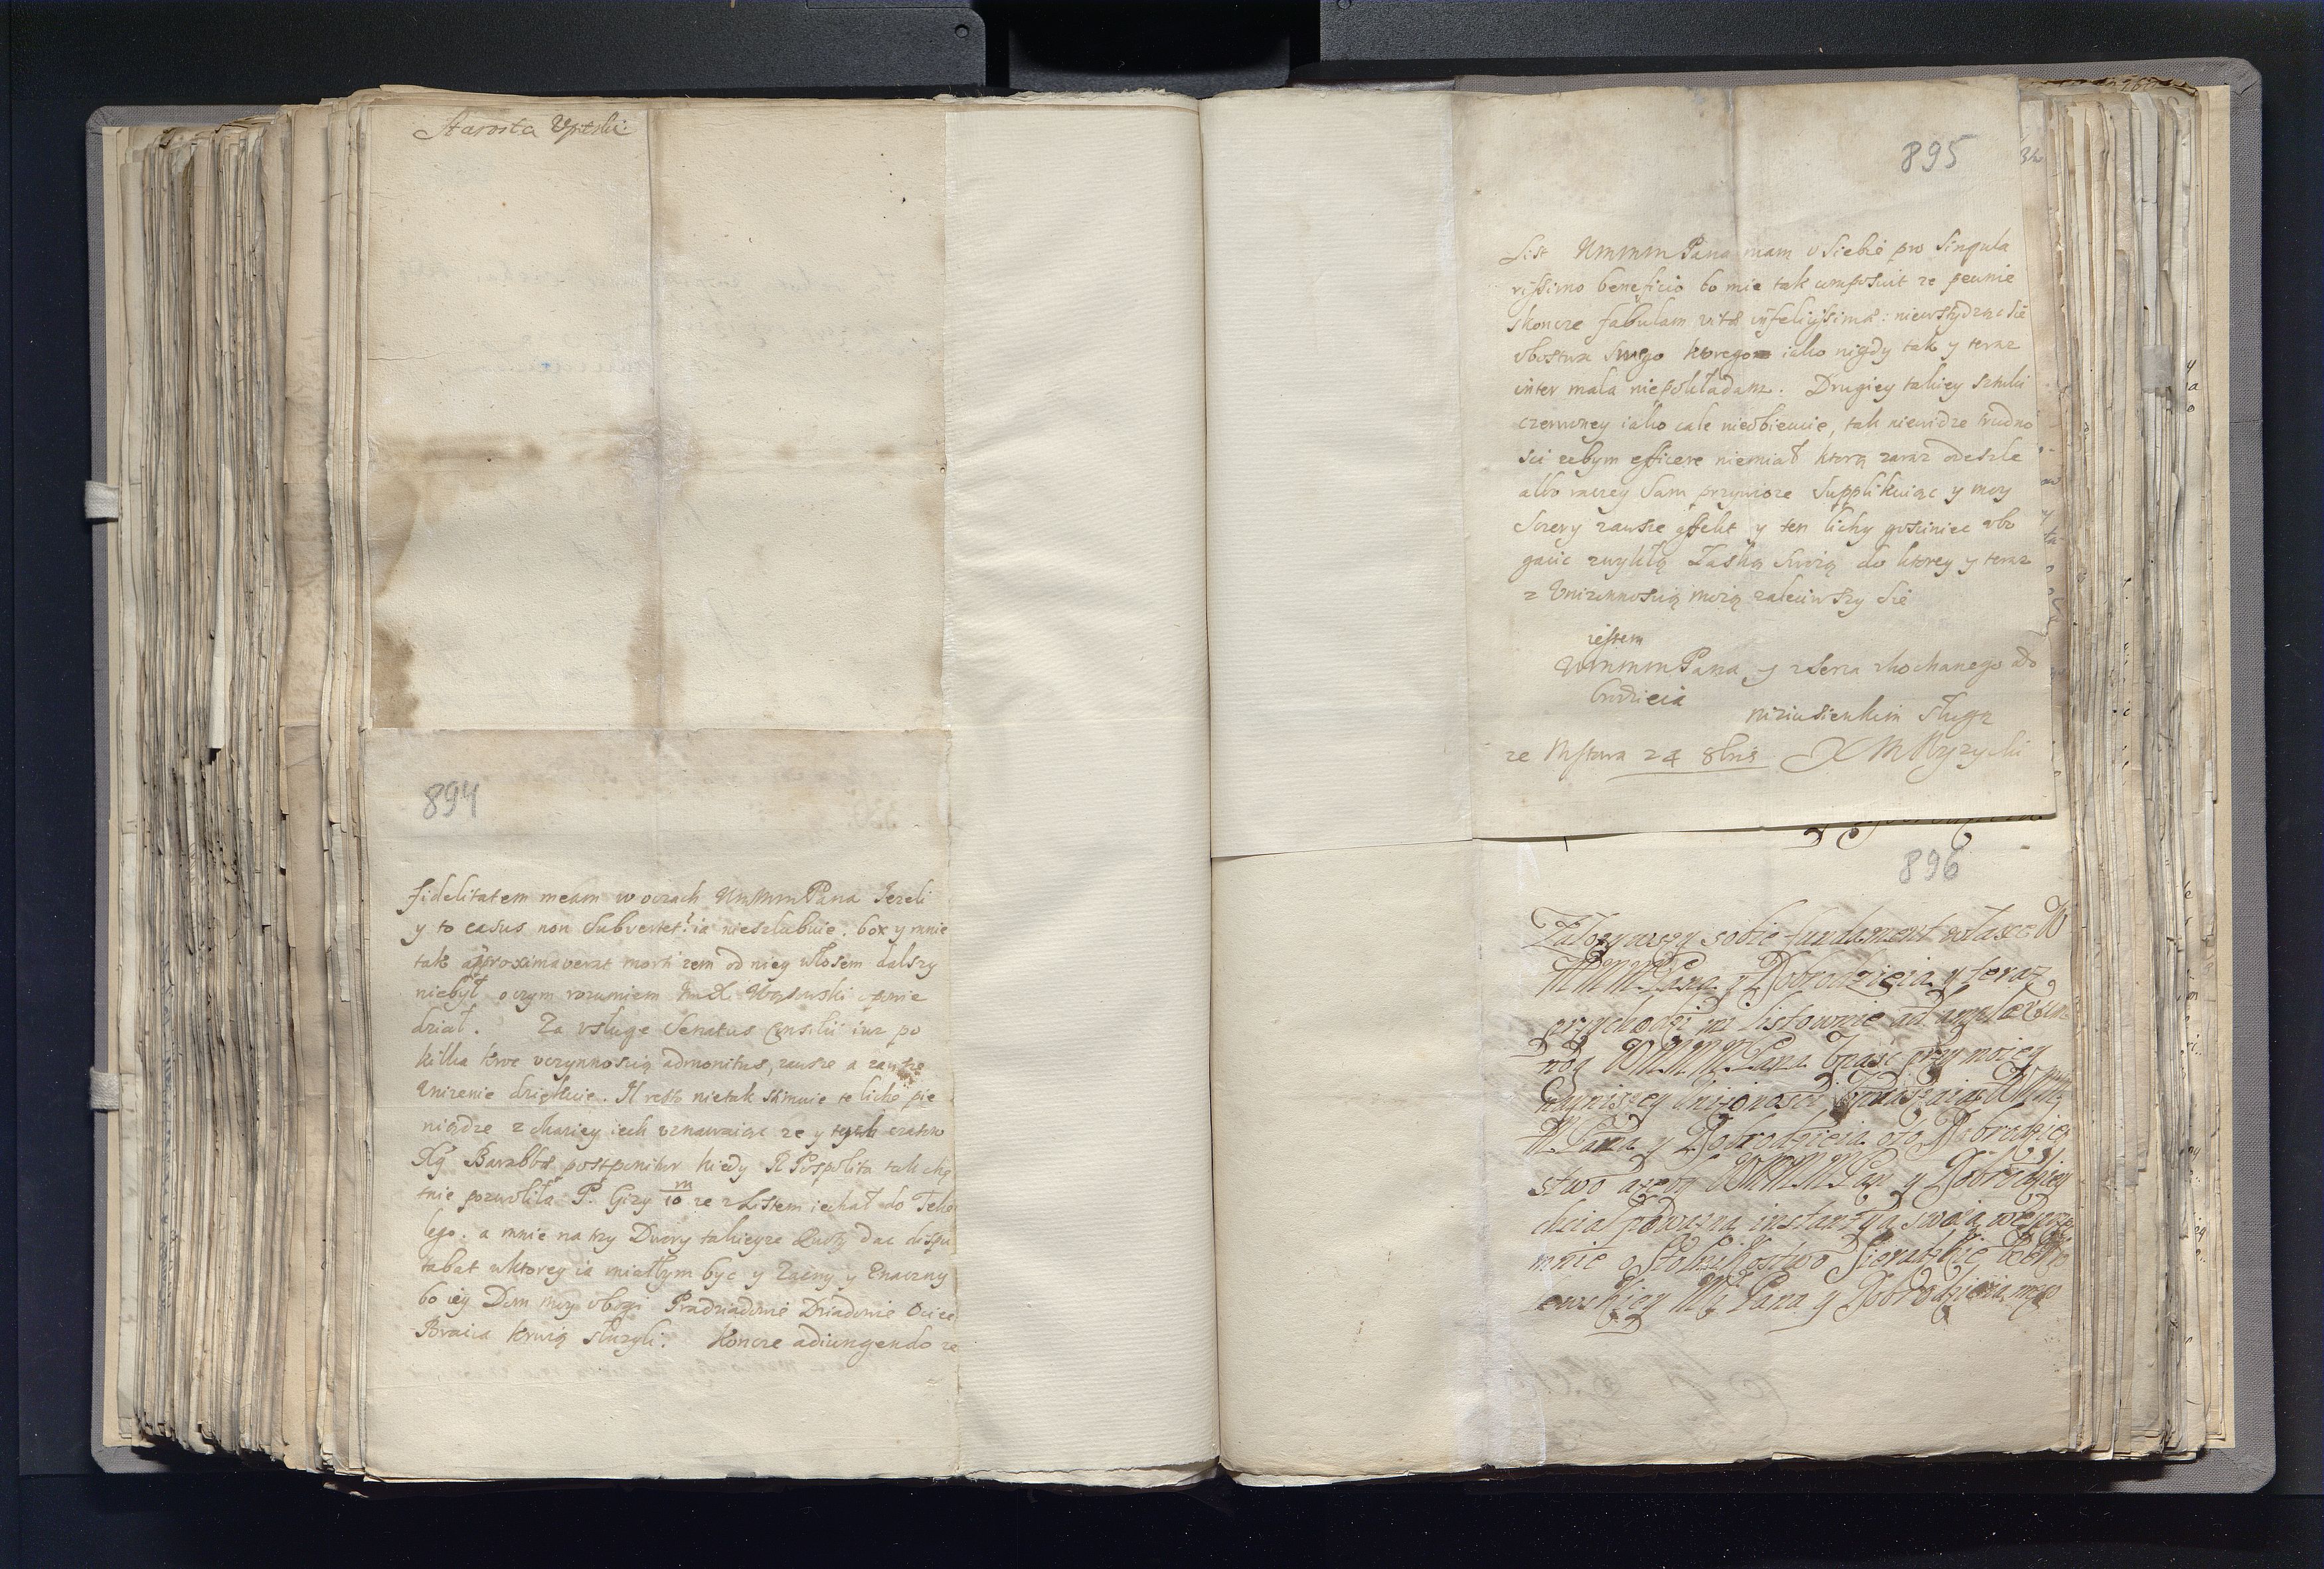 Starosta Upitski
894
fidelitatem meam w oczach WmMmPana Jezeli
y to casus non subvertet? ia nieszlubuie. boz y mnie
tak approximaverat mors zem od niey włosem dalszy
niebył o czym rozumiem powie
dział. Za usługe Senatus Consilii iuz po
kilka kroc uczynnoscią admonitus, zawsze a zawsze
Unizenie dziękuie. nietak szimuie te liche pie
niądze z ich uznawaiąc ze y tych czasow
Barabbas postponitur kiedy R Pospolita tak chę
tnie pozwoliła P. Gizy m/10 ze z Listem iechał do Teke
lego. a mnie na trzy Dwory takieyze Quoty dac dispu
tabat uktorey ia miałbym byc y Zacny y Znaczny
bo iey Dom moy ubogi Pradziadowie Dziadowie Ociec
Bracia krwią słuzyli. Koncze adiungendo ze
895
List WmmmPana mam u siebie pro singula
rissimo beneficio bo mie tak composuit ze pewnie
skoncze fabulam vitæ infelicissimæ: niewstydząc się
ubostwa swego ktorego iako nigdy tak y teraz
inter mala niepokładam. Drugiey takiey sztuki
czerwoney iako cale nieobiecuie, tak niewidze trudno
sci zebym efficere niemiał ktorą zaraz odeszle
albo raczey sam przywioze supplikuiąc y moy
szczery zawsze affekt y ten lichy gosciniec ubo
gacic zwykłą Łaską swoią do ktorey y teraz
z Unizonnoscią moią zaleciwszy się
iestem
WmmmPana y z serca kochanego do
brodzieia
niziusienkim sługą
ze Mstowa 24 8bris X M Ryzycki
896
Załozywszy sobie fundament w łasce W
MMMPana y Dobrodzieia y teraz
przychodzi mi listownie ad amplexum
nog WMMMPana przy moiey
nayniszey unizonosci WMM
MPana y Dobrodzieia o to Dobrodziey
stwo azeby WMMMPan y Dobrodziey
chciał powazną instantyą swoią wesprzeć
mnie o Stolnikostwo Sieradzkie do Kro
lewskiey Mci Pana y Dobrodzieia mego